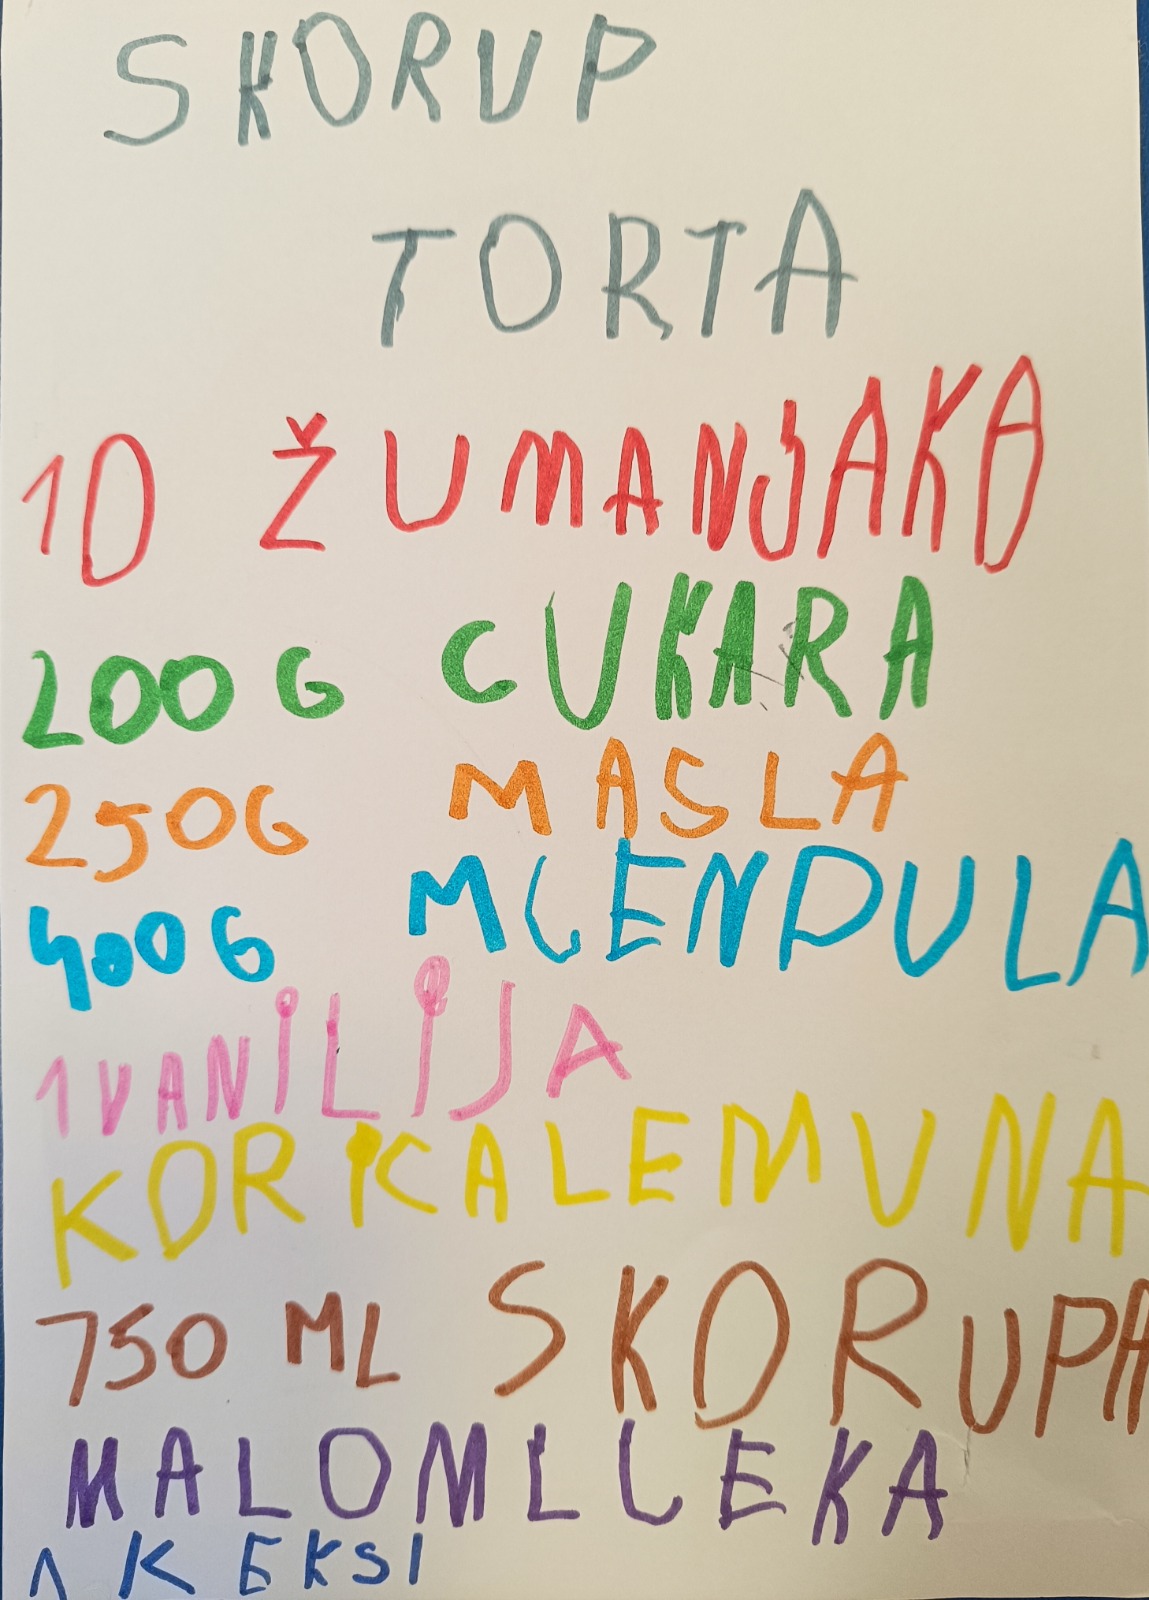 SKORUP
TORTA
10 ŽUMANJAKA
200 G CUKARA
250G MASLA
400G MJENDULA
1 VANILIJA
KORICA LEMUNA
750 ML SKORUPA
MALO MLJEKA
1 KEKSI